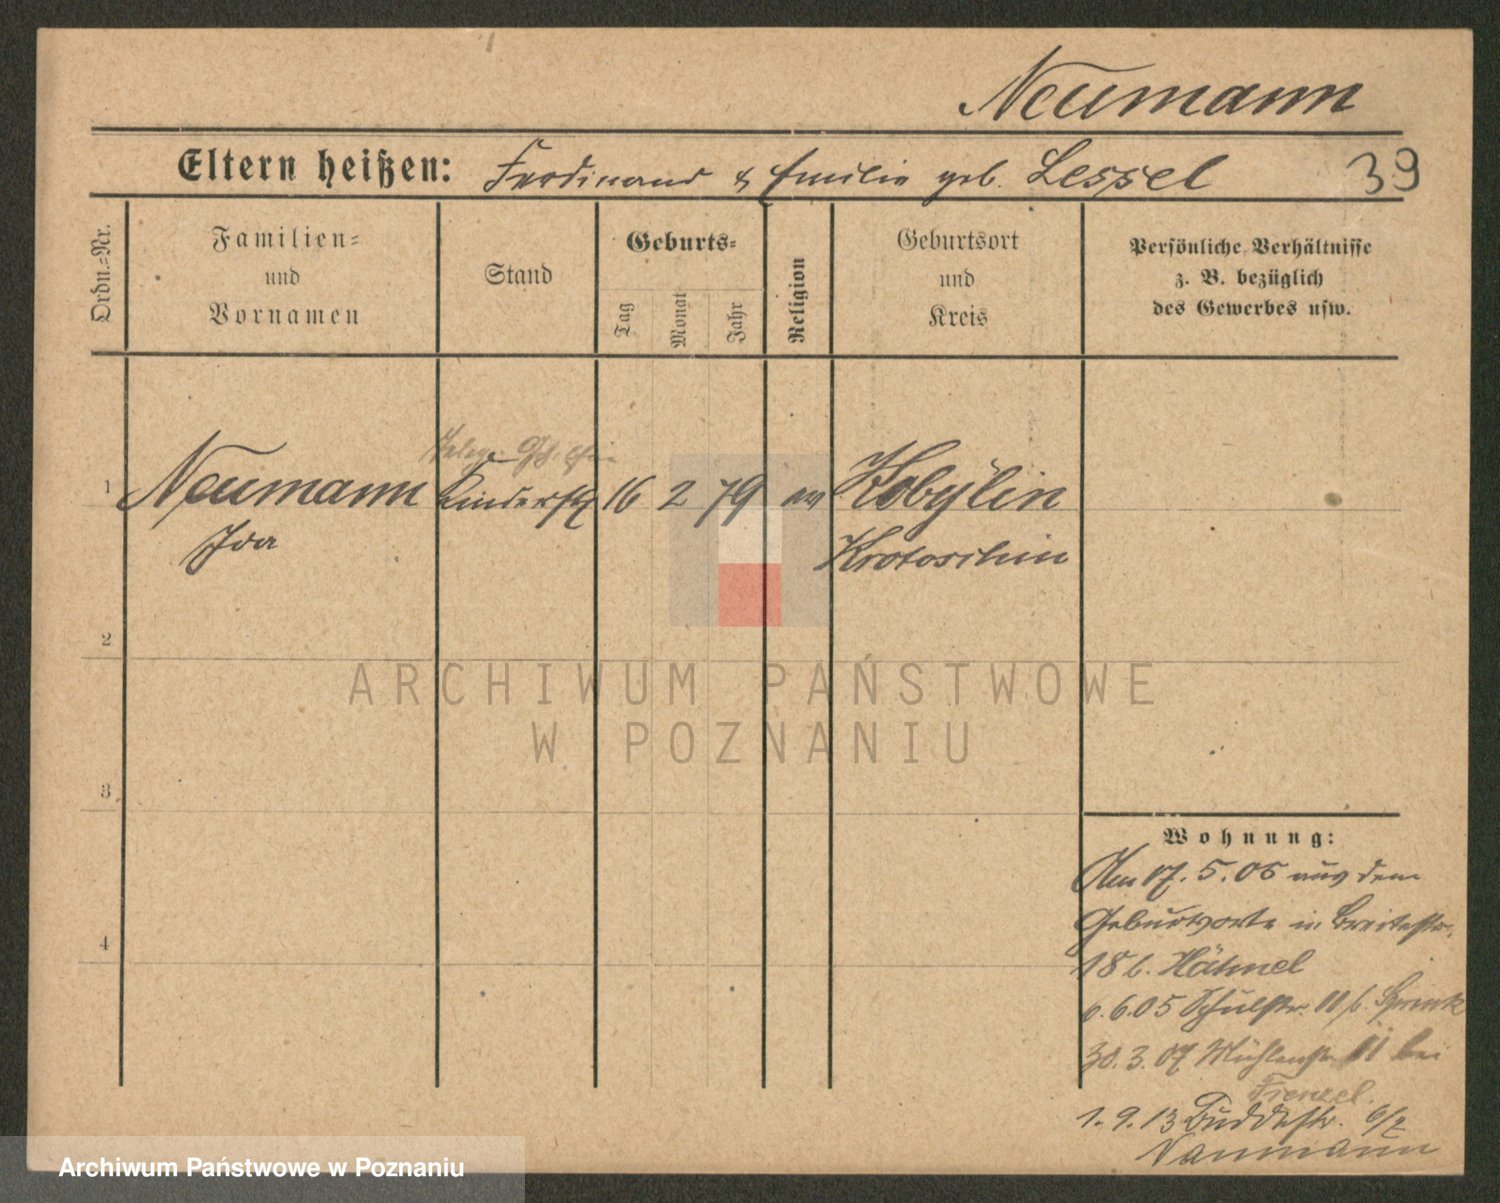 Neumann
Eltern heißen: Ferdinand & Emilie geb. Lessel 39
Ordn.-Nr.
Familien-
und
Vornamen
Stand
Geburts-
Tag
Monat
Jahr
Religion
Geburtsort
und
Kreis
Persönliche Verhältnisse
z. B. bezüglich
des Gewerbes usw.
1 Neumann Kinderfrl 16 2 79 ev Kobylin
Ida Krotoschin
2
3
4
ARCHIWUM PAŃSTWOWE
W POZNANIU
Wohnung:
Am 17.5.05 aus dem
Geburtsorte in Breitestr.
18 b. Hähnel
6.6.05 Schulstr. 11 b.
30.3.07 Mühlenstr. 11 bei
Frenzel.
1.9.13 Buddestr. 6/2
Naumann
Archiwum Państwowe w Poznaniu